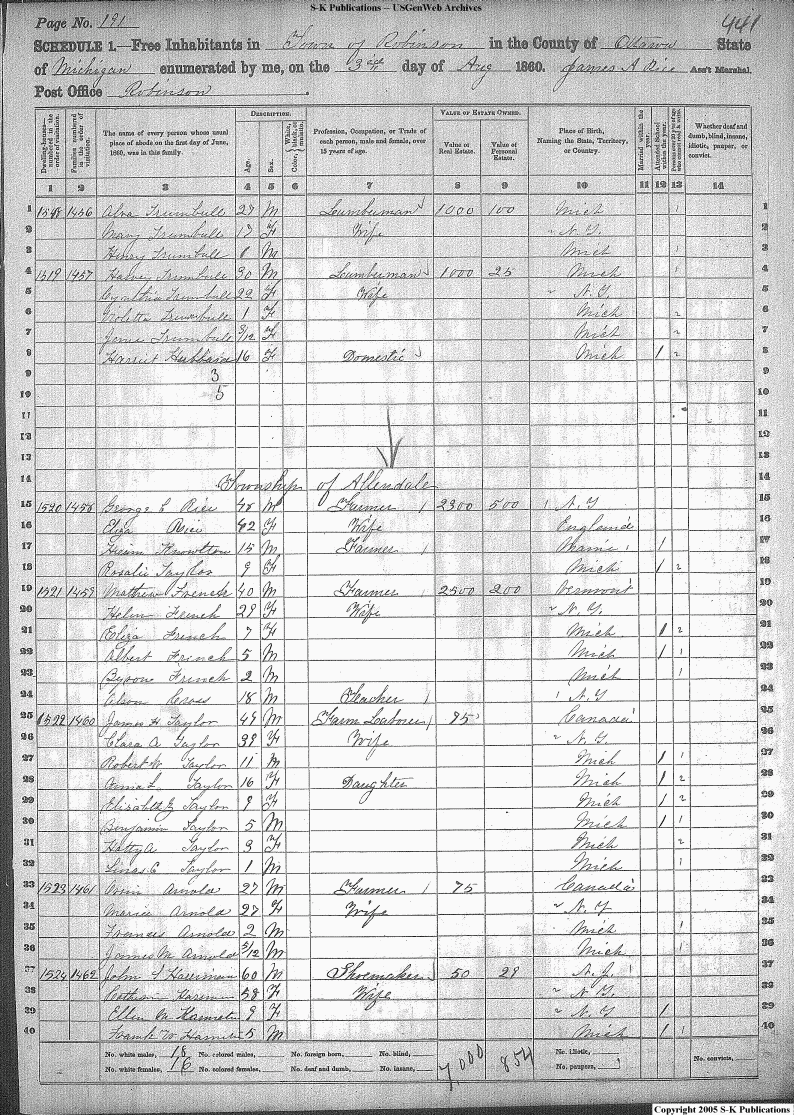 S-K Publications – USGenWeb Archives
Page No. 191
441
SCHEDULE 1.—Free Inhabitants in Town of Robinson in the County of Ottawa State
of Michigan enumerated by me, on the 3rd day of Aug 1860. James A Rice Ass't Marshal.
Post Office Robinson
Dwelling-houses—numbered in the order of visitation.
Families numbered in the order of visitation.
The name of every person whose usual place of abode on the first day of June, 1860, was in this family.
DESCRIPTION.
Age.
Sex.
Color, White, black, or mulatto.
Profession, Occupation, or Trade of each person, male and female, over 15 years of age.
VALUE OF ESTATE OWNED.
Value of Real Estate.
Value of Personal Estate.
Place of Birth, Naming the State, Territory, or Country.
Married within the year.
Attended School within the year.
Whether deaf and dumb, blind, insane, idiotic, pauper, or convict.
1 2 3 4 5 6 7 8 9 10 11 12 13 14
1 1456 Alva Trumbull 27 M Lumberman 1000 100 Mich 1 1
2 Mary Trumbull 17 F Wife " N.Y. 2
3 Henry Trumbull M Mich 1 3
4 1519 1457 Trumbull 30 M Lumberman 1000 25 Mich 1 4
5 Cynthia Trumbull 22 F Wife " N.Y. 5
6 Trumbull 1 F Mich 2 6
7 Trumbull 3/12 F Mich 2 7
8 Harriet Hubbard 16 F Domestic Mich 1 2 8
9 3 9
10 5 10
11 11
12 12
13 13
14 Township of Allendale 14
15 1520 1458 George Rice 48 M Farmer 2300 500 N.Y 15
16 Eliza Rice 42 F Wife England 16
17 Hiram Knowlton 15 M Farmer 1 17
18 Rosalie Taylor 9 F Mich 1 2 18
19 1521 1459 Mathew French 40 M Farmer 2500 200 Vermont 19
20 Helen French 29 F Wife " N.Y. 20
21 Eliza French 7 F Mich 1 2 21
22 Albert French 5 M Mich 1 1 22
23 Byron French 2 M Mich 1 23
24 Cross 18 M Teacher N.Y 24
25 1522 1460 James H Taylor 49 M Farm Laborer 75 Canada 25
26 Clara A Taylor 38 F Wife " N.Y. 26
27 Robert W Taylor 11 M Mich 1 1 27
28 Taylor 16 F Daughter Mich 1 2 28
29 Elizabeth Taylor 9 F Mich 1 2 29
30 Benjamin Taylor 5 M Mich 1 1 30
31 Hatty A Taylor 3 F Mich 2 31
32 Linas C Taylor 1 M Mich 1 32
33 1523 1461 Orvin Arnold 27 M Farmer 75 Canada 33
34 Maria Arnold 27 F Wife " N.Y 34
35 Frances Arnold 2 M Mich 1 35
36 James M Arnold 5/12 M Mich 1 36
37 1524 1462 John S 60 M Shoemaker 50 29 N.J. 37
38 58 F Wife " N.Y. 38
39 Ellen M 9 F " N.Y 1 39
40 Frank W 5 M Mich 1 1 40
No. white males, 18 No. colored males, No. foreign born, No. blind, 7,000 854 No. idiotic, No. convicts,
No. white females, 16 No. colored females, No. deaf and dumb, No. insane, No. paupers,
Copyright 2005 S-K Publications